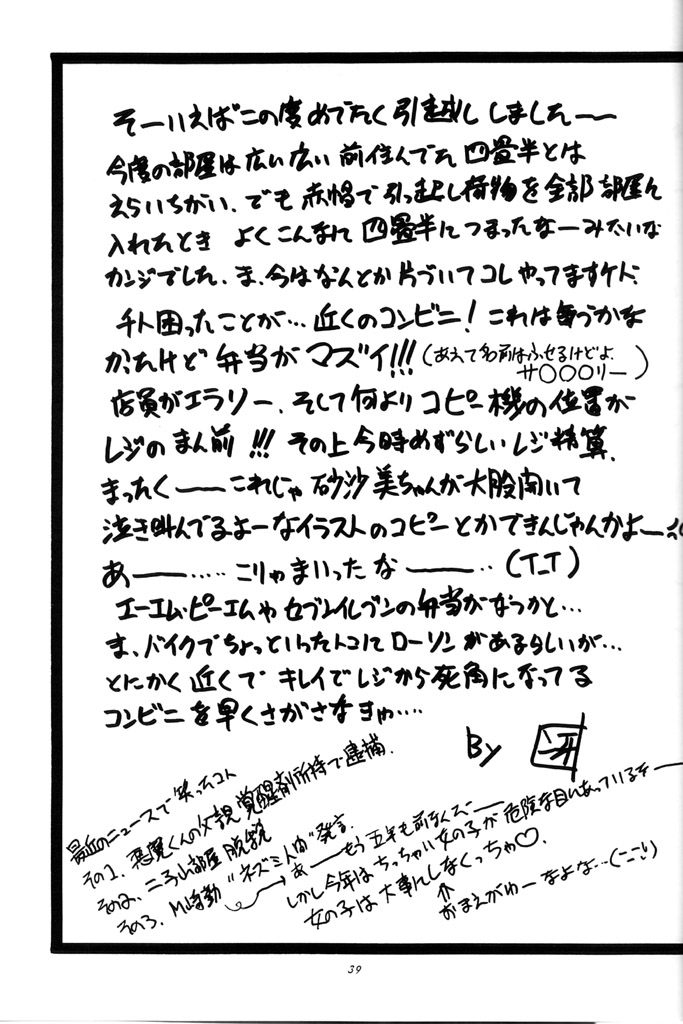 そーいえばこの度めでたく引越ししましたーー
今度の部屋は広い広い前住んでた四畳半とは
えらいちがい、でも赤帽で引っ越し荷物を全部部屋に
入れたとき よくこんなに四畳半につまったなーみたいな
カンジでした、ま、今はなんとか片づいてコレやってますケド、
チト困ったことが…近くのコンビニ!これは毎うかな
かたけど 弁当がマズイ!!!(あえて名前はふせるけどよ、
サ〇〇〇リー)
店員がエラソー、そして何よりコピー機の位置が
レジのまん前!!!その上今時めずらしいレジ精算、
まったくーーこれじゃ砂沙美ちゃんが大股開いて
泣き叫んでるよーなイラストのコピーとかできんじゃんかよー
あーー……こりゃまいったなーー‥(T_T)
エーエム・ピーエムやセブンイレブンの弁当がなつかと…
ま、バイクでちょっといったトコにローソンがあるらしいが…
とにかく近くでキレイでレジから死角になってる
コンビニを早くさがさなきゃ….
By
最近のニュースで笑ったコト
その1、悪魔くんの父親覚醒剤所持で逮捕、
その2、二子山部屋脱税
その3、M崎勤“ネズミ人間”発言、
→あーーもう五年も前なんだーー
しかし今年はちっちゃい女の子が危険な目にあっているぞーー
女の子は大事にしなくっちゃ♡
↑
おまえがゆーなよな…(ここじ)
39